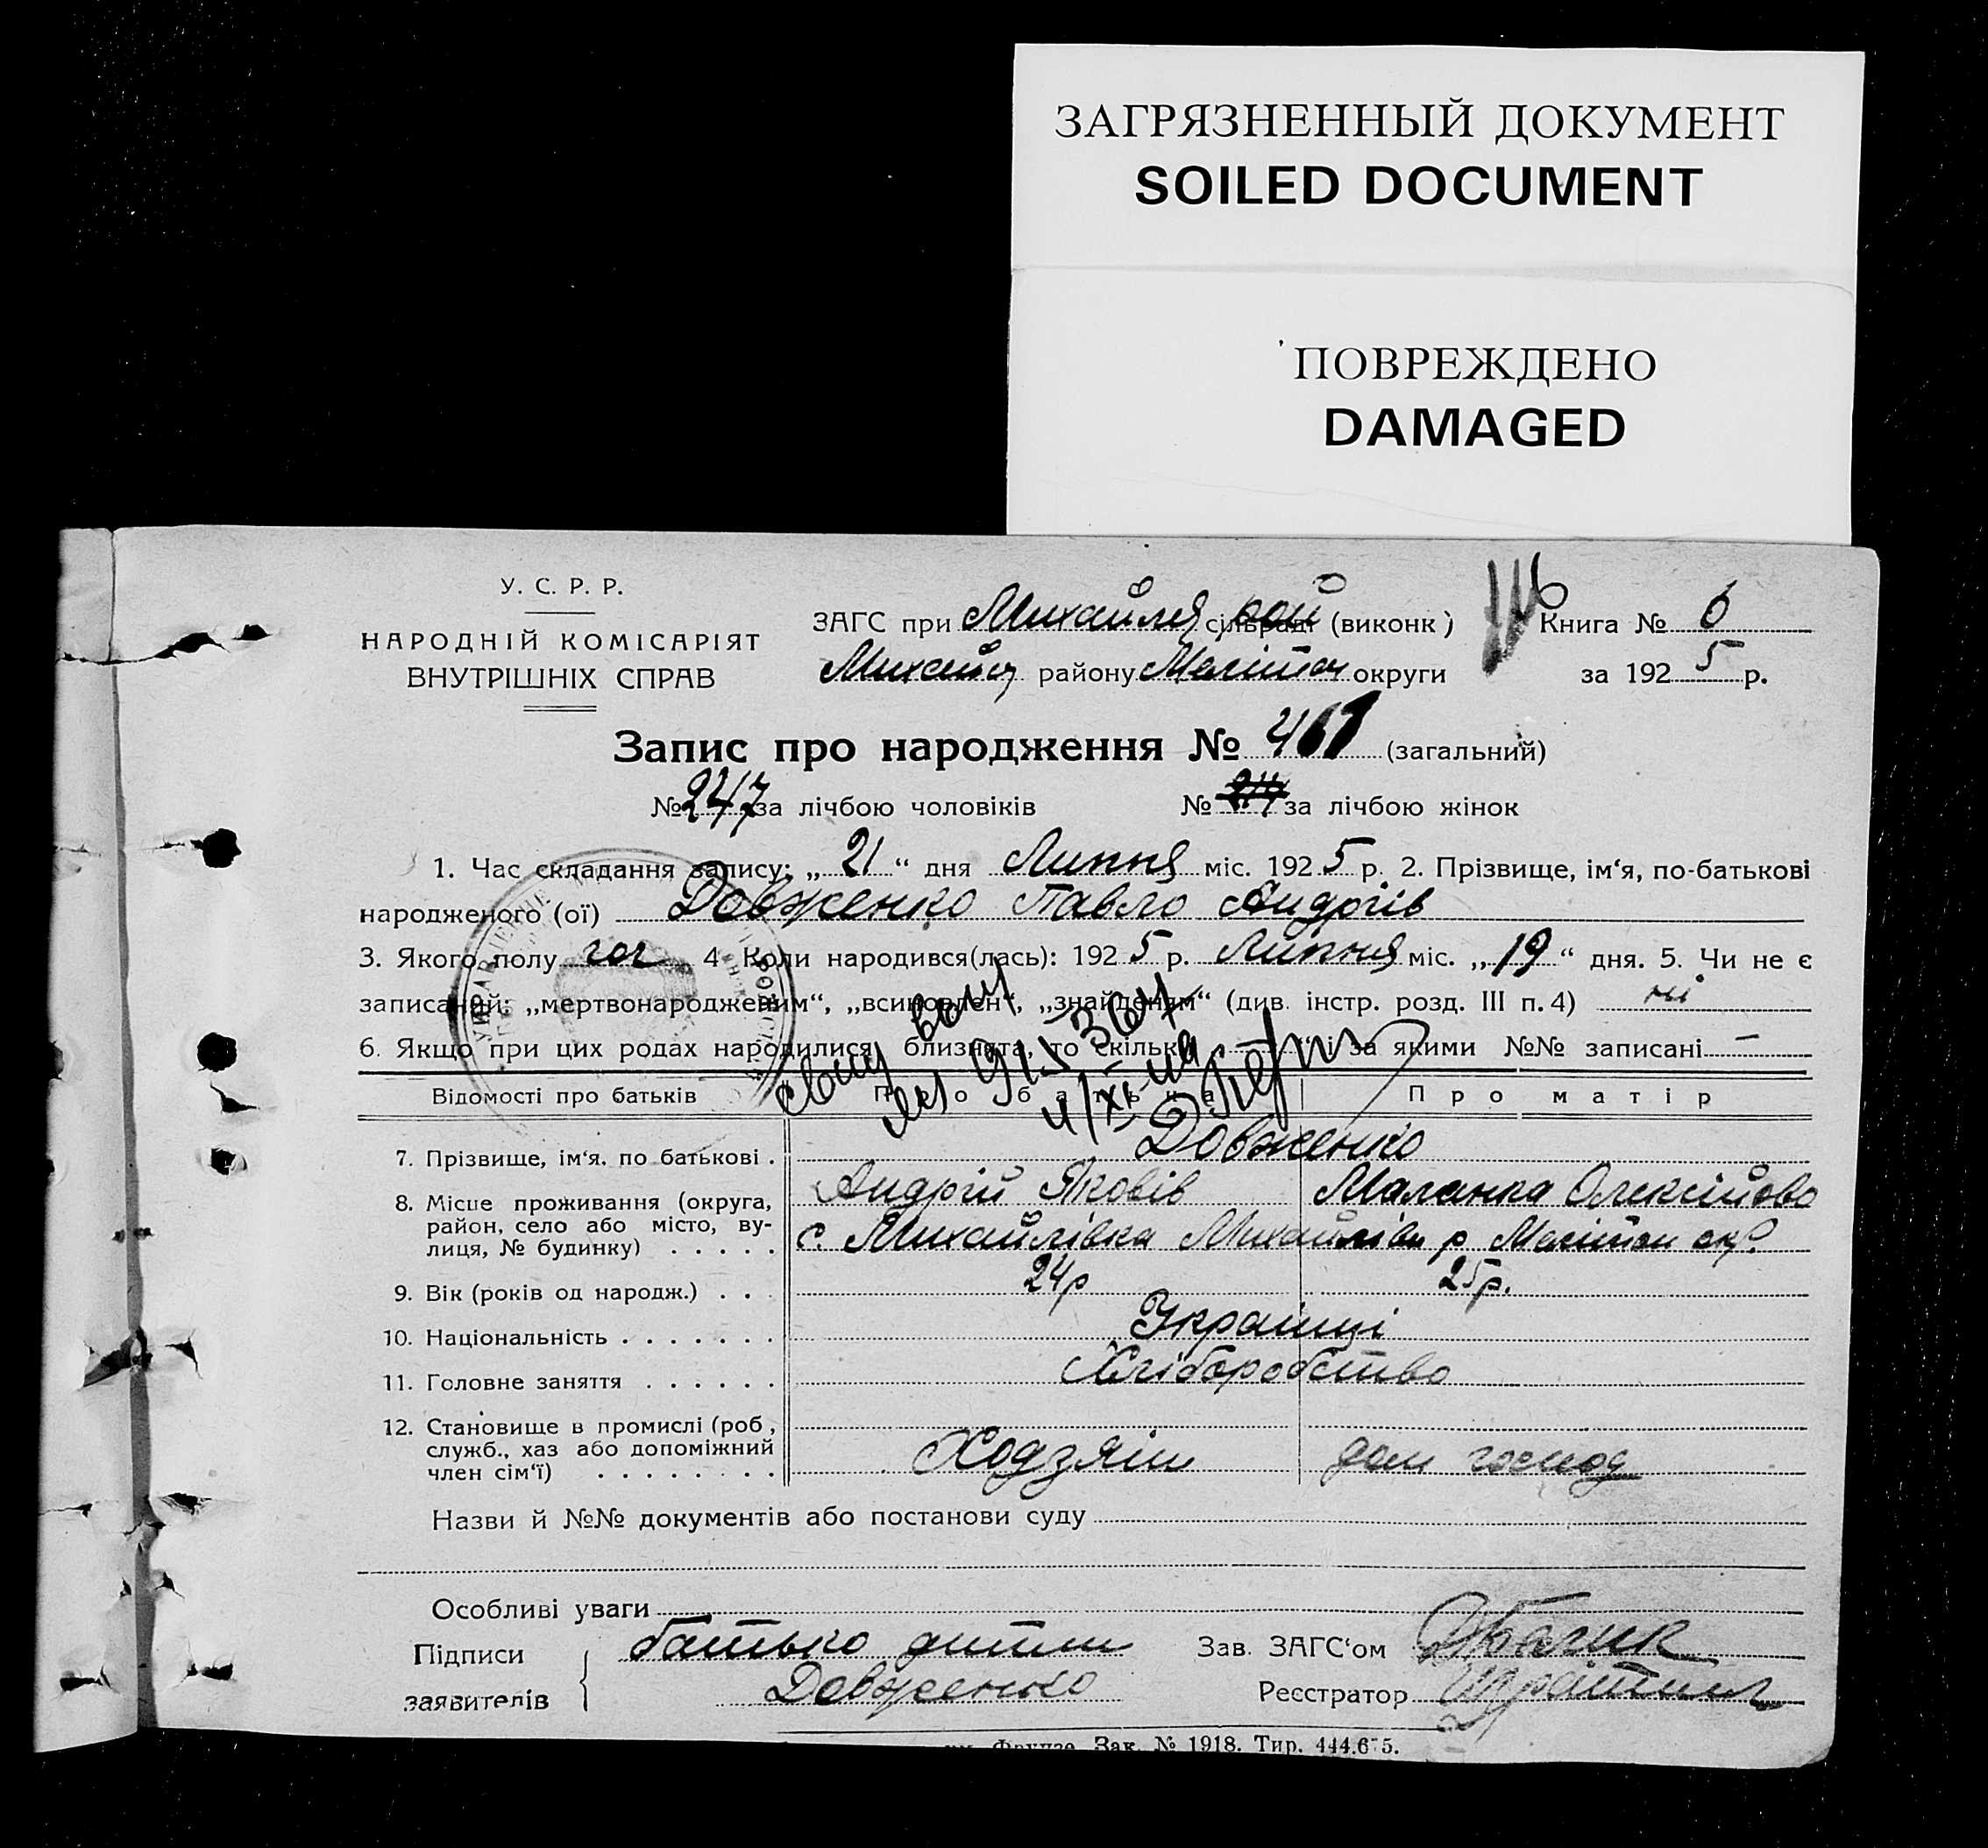 ЗАГРЯЗНЕННЫЙ ДОКУМЕНТ
SOILED DOCUMENT
ПОВРЕЖДЕНО
DAMAGED
У. С. Р. Р.
НАРОДНІЙ КОМІСАРІЯТ
ВНУТРІШНІХ СПРАВ
ЗАГС при Михайлів сільраді рай (виконк)
Михайлів району Мелітоп округи
116
Книга № 6
за 1925 р.
Запис про народження № 461 (загальний)
№ 247 за лічбою чоловіків № за лічбою жінок
1. Час складання запису: „ 21 “ дня Липня міс. 1925 р. 2. Прізвище, ім‘я, по-батькові
народженого (ої) Довженко Павло Андріїв
3. Якого полу чол 4 Коли народився(лась): 1925 р. Липня міс. „ 19 “ дня. 5. Чи не є
записаний: „мертвонародженим“, „всиновлен“, „знайденям“ (див. інстр. розд. III п. 4) ні
6. Якщо при цих родах народилися близнята, то скільки за якими №№ записані —
Відомості про батьків Про батька Про матір
7. Прізвище, ім‘я. по батькові . Довженко
Андрій Яковів Маланка Олексійова
8. Місце проживання (округа,
район, село або місто, ву-
лиця, № будинку) . . . . . с. Михайлівка Михайлівк р Мелітоп окр.
9. Вік (років од народж.) . . . 24р 25р.
10. Національність . . . . . . . Українці
11. Головне заняття . . . . . . Хліборобство
12. Становище в промислі (роб,
служб., хаз або допоміжний
член сім‘ї) . . . . . . . . Ходзяїн дом господ
Назви й №№ документів або постанови суду
Особливі уваги
Підписи
заявителів
батько дитини
Довженко
Зав. ЗАГС‘ом
Реєстратор
Фрунзе. Зак. № 1918. Тир. 444.675.